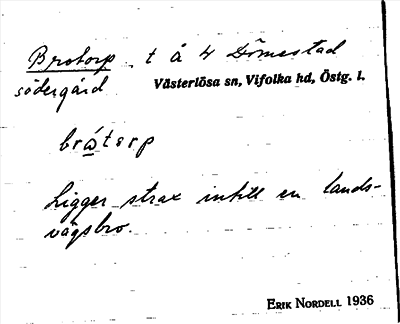 Brotorp t å 4 Dömestad
södergård Västerlösa sn, Vifolka hd, Östg. l.
brá̲torp
Ligger strax intill en lands-
vägsbro.
ERIK NORDELL 1936